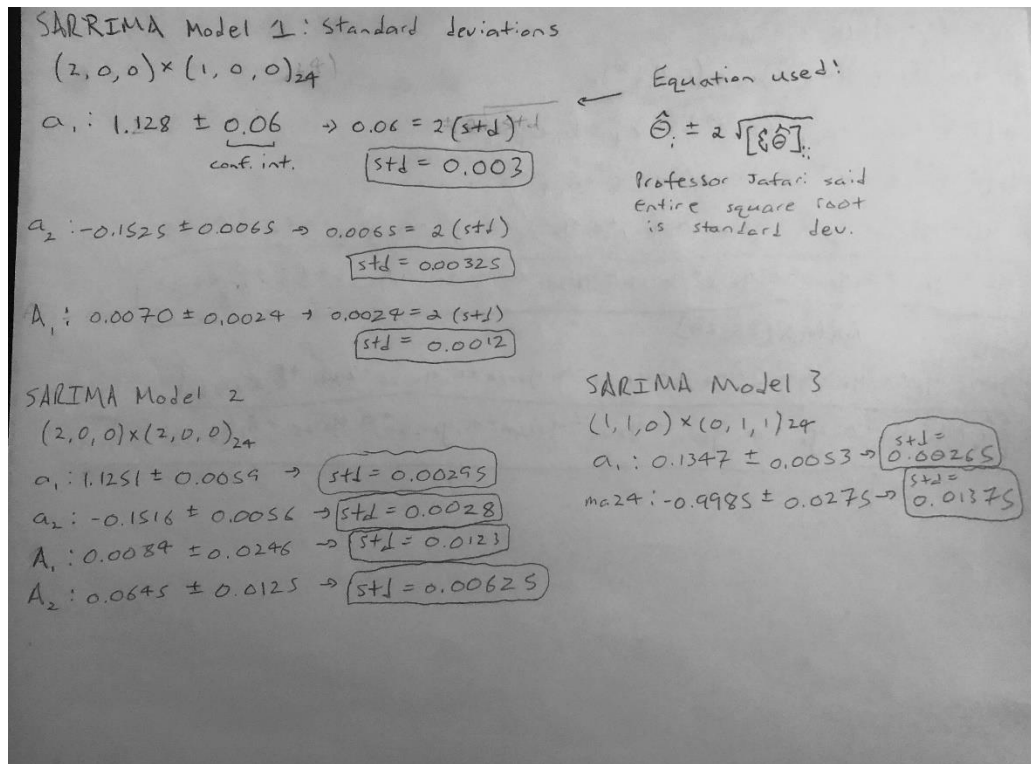 SARRIMA Model 1: Standard deviations
(2,0,0) × (1,0,0)24
a1: 1.128 ± 0.06 → 0.06 = 2(std)
conf. int.
std = 0.003
← Equation used:
Θ̂i ± 2 √[Σθ̂]ii
Professor Jafari said
Entire square root
is standard dev.
a2: -0.1525 ± 0.0065 → 0.0065 = 2(std)
std = 0.00325
A1: 0.0070 ± 0.0024 → 0.0024 = 2(std)
std = 0.0012
SARIMA Model 2
(2,0,0)×(2,0,0)24
a1: 1.1251 ± 0.0059 → std = 0.00295
a2: -0.1516 ± 0.0056 → std = 0.0028
A1: 0.0084 ± 0.0246 → std = 0.0123
A2: 0.0645 ± 0.0125 → std = 0.00625
SARIMA Model 3
(1,1,0) × (0,1,1)24
a1: 0.1347 ± 0.0053 → std = 0.00265
ma24: -0.9985 ± 0.0275 → std = 0.01375